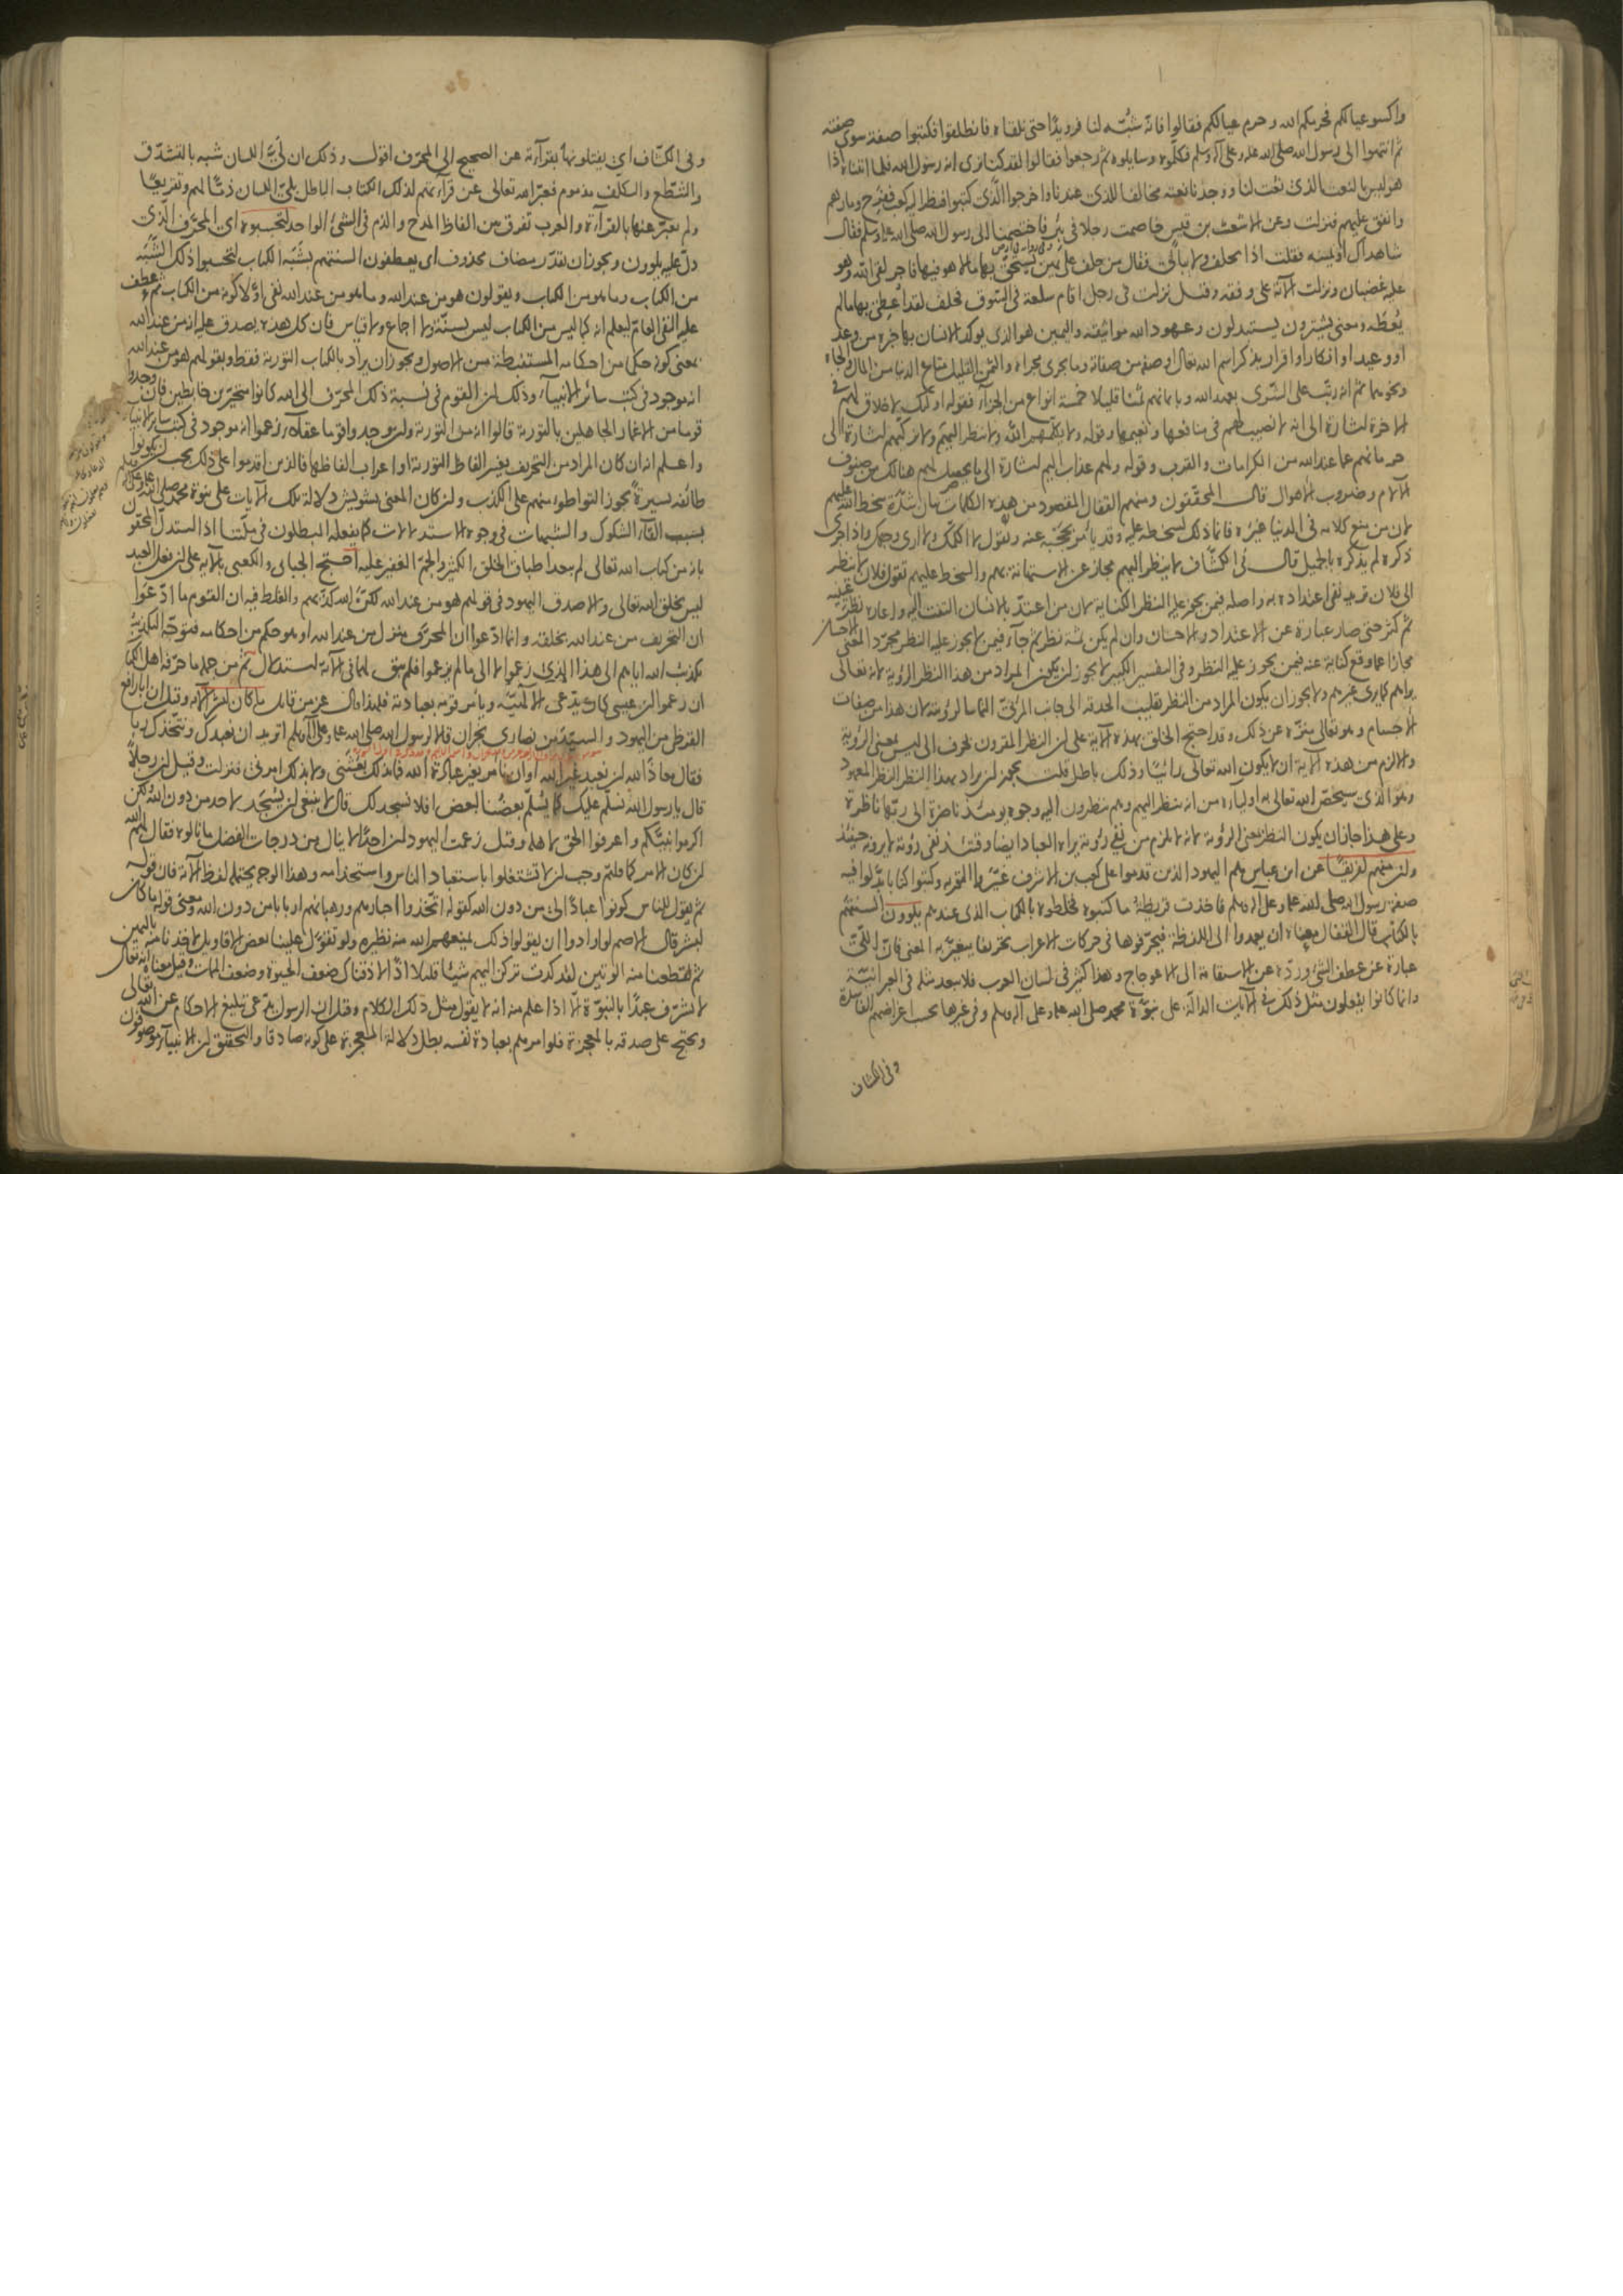 واكسو عيالكم فحرمكم الله وحرم عيالكم فقالوا فانه شبّه لنا فرويدًا حتى نلقاه فانطلقوا فكتبوا صفة سوى صفته
ثم انتهوا الى رسول الله صلى الله عليه وعلى آله وسلم فكلموه وسايلوه ثم رجعوا فقالوا لقد كنا نرى انه رسول الله فلما اتيناه اذا
هو ليس بالنعت الذى نعت لنا ووجدنا نعته مخالفا للذى عندنا واخرجوا الذى كتبوا فنظر اليه كعب ففرح ومارهم
وانفق عليهم فنزلت وعن الاشعث بن قيس خاصمت رجلا فى بئر فاختصمنا الى رسول الله صلى الله عليه وسلم فقال
شاهداك او يمينه فقلت اذا يحلف ولا يبالى فقال من حلف على يمين يستحق بها مالا هو فيها فاجر لقى الله وهو
عليه غضبان ونزلت الآية على وفقه وقيل نزلت فى رجل اقام سلعة فى السوق فحلف لقد اُعطى بها ما لم
يُعطَه ومعنى يشترون يستبدلون وعهود الله مواثيقه واليمين هو الذى يوكد الانسان بها خبره من وعد
او وعيد او انكار او اقرار بذكر اسم الله تعالى او صفة من صفاته وما يجرى مجراه والثمن القليل متاع الدنيا من المال والجاه
ونحوهما ثم انه رتّب على الشرى بعهد الله وبايمانهم ثمنا قليلا خمسة انواع من الجزاء فقوله اولئك لا خلاق لهم فى
الآخرة اشارة الى انه لا نصيب لهم فى منافعها ونعيمها وقوله ولا يكلمهم الله ولا ينظر اليهم ولا يزكيهم اشارة الى
حرمانهم عما عند الله من الكرامات والقرب وقوله ولهم عذاب اليم اشارة الى ما يحصل لهم هنالك من صنوف
الآلام وضروب الاهوال قال المحققون ومنهم القفال المقصود من هذه الكلمات بيان شدة سخط الله عليهم
لان من منع كلامه فى الدنيا غيره فانما ذلك لسخطه عليه وقد يأمر بحجبه عنه ويقول لا اكلمك ولا ارى وجهك واذا جرى
ذكره لم يذكره بالجميل قال فى الكشاف لا ينظر اليهم مجاز عن الاستهانة بهم والسخط عليهم تقول فلان لا ينظر
الى فلان تريد نفى اعتداده به واصله فيمن يجوز عليه النظر الكناية لان من اعتد بالانسان التفت اليه واعاره نظر عينيه
ثم كثر حتى صار عبارة عن الاعتداد والاحسان وان لم يكن ثمة نظر ثم جاء فيمن لا يجوز عليه النظر مجرد المعنى الاحسان
مجازا عما وقع كناية عنه فيمن يجوز عليه النظر وفى التفسير الكبير لا يجوز ان يكون المراد من هذا النظر الرؤية لانه تعالى
يراهم كما يرى غيرهم ولا يجوز ان يكون المراد من النظر تقليب الحدقة الى جانب المرئى التماسا لرؤيته لان هذا من صفات
الاجسام وهو تعالى منزه عن ذلك وقد احتج الخلق بهذه الآية على ان النظر المقرون بحرف الى ليس بمعنى الرؤية
والا لزم من هذه الآية ان لا يكون الله تعالى رائيًا وذلك باطل قلت يجوز ان يراد بهذا النظر النظر المعهود
وهو الذى سيخص الله تعالى به اولياءه من انه ينظر اليهم وهم ينظرون اليه وجوه يومئذ ناضرة الى ربها ناظرة
وعلى هذا جاز ان يكون النظر بمعنى الرؤية لانه لا يلزم من نفى رؤية يراه العباد ايضا وقتئذ نفى رؤية لا يرونه حينئذ
وان منهم لفريقًا عن ابن عباس هم اليهود الذين قدموا على كعب بن الاشرف غيروا التورية وكتبوا كتابا بدلوا فيه
صفة رسول الله صلى الله عليه وعلى آله وسلم فاخذت قريظة ما كتبوه فخلطوه بالكتاب الذى عندهم يلوون السنتهم
بالكتاب قال القفال معناه ان يعمدوا الى اللفظة فيحرفوها فى حركات الاعراب تحريفا يتغير به المعنى فان اللى
عبارة عن عطف الشئ ورده عن الاستقامة الى الاعوجاج وهذا كثير فى لسان العرب فلا يبعد مثله فى العبرانية
وانما كانوا يفعلون مثل ذلك فى الآيات الدالة على نبوة محمد صلى الله عليه وعلى آله وسلم وفى غيرها بحسب اغراضهم الفاسدة
وفى الكشاف
وفى الكشاف اى يفتلونها بقرآءته عن الصحيح الى المحرف اقول وذلك ان لىّ اللسان شبه بالتشدق
والتنطع والتكلف مذموم فعبر الله تعالى عن قرآءتهم لذلك الكتاب الباطل بلى اللسان ذمًّا لهم وتقريعًا
ولم يعبر عنها بالقرآءة والعرب تفرق بين الفاظ المدح والذم فى الشئ الواحد لتحسبوه اى المحرف الذى
دل عليه يلوون ويجوز ان يقدر مضاف محذوف اى يعطفون السنتهم بشبه الكتاب لتحسبوا ذلك الشبه
من الكتاب وما هو من الكتاب ويقولون هو من عند الله وما هو من عند الله نفى اولا كونه من الكتاب ثم عطف
عليه النفى العام ليعلم انه كما ليس من الكتاب ليس بسنة ولا اجماع ولا قياس فان كل هذه يصدق عليه انه من عند الله
بمعنى كونه حكما من احكامه المستنبطة من الاصول ويجوز ان يراد بالكتاب التورية فقط وبقولهم هو من عند الله
انه موجود فى كتب سائر الانبياء وذلك ان القوم فى نسبة ذلك المحرف الى الله كانوا متحيرين خابطين فان وجدوا
قوما من الاغمار الجاهلين بالتورية قالوا انه من التورية وان وجدوا قوما عقلاء زعموا انه موجود فى كتب سائر الانبياء
واعلم انه ان كان المراد من التحريف تغيير الفاظ التورية او اعراب الفاظها فالذين اقدموا على ذلك يجب ان يكونوا
طائفة يسيرة يجوز التواطوء منهم على الكذب وان كان المعنى تشويش دلالة تلك الآيات على نبوة محمد صلى الله عليه وعلى آله وسلم
بسبب القاء الشكوك والشبهات فى وجوه الاستدلالات كما يفعله المبطلون فى ملتنا اذا استدل المحقون
بآية من كتاب الله تعالى لم يبعد اطباق الخلق الكثير والجم الغفير عليه احتج الجبائى والكعبى بالآية على ان فعل العبد
ليس بخلق الله تعالى والا صدق اليهود فى قولهم هو من عند الله لكن الله كذبهم والغلط فيه ان القوم ما ادعوا
ان التحريف من عند الله بخلقه وانما ادعوا ان المحرف منزل من عند الله او هو حكم من احكامه فتوجه التكذيب
تكذيب الله اياهم الى هذا الذى زعموا لا الى ما لم يزعموا فلم يبق لهما فى الآية استدلال ثم من جملة ما حرفه اهل الكتاب
ان زعموا ان عيسى كان يدعى الالهية ويأمر قومه بعبادته فلهذا قال عز من قائل ما كان لبشر الآية وقيل ان ابا رافع
القرظى من اليهود والسيد من نصارى نجران قالا لرسول الله صلى الله عليه وعلى آله وسلم اتريد ان نعبدك ونتخذك ربا
فقال معاذ الله ان نعبد غير الله او ان نامر بغير عبادة الله فما بذلك بعثنى ولا بذلك امرنى فنزلت وقيل ان رجلا
قال يا رسول الله نسلم عليك كما يُسلّم بعضنا لبعض افلا نسجد لك قال لا ينبغى ان يُسجَد لاحد من دون الله ولكن
اكرموا نبيكم واعرفوا الحق لاهله وقيل زعمت اليهود ان احدا لا ينال من درجات الفضل ما نالوه فقال لهم الله
ان كان الامر كما قلتم وجب ان لا تشتغلوا باستعباد الناس واستخدامه وهذا الوجه يحتمله لفظ الآية فان قوله
ثم يقول للناس كونوا عبادًا لى من دون الله كقوله اتخذوا احبارهم ورهبانهم اربابا من دون الله ومعنى قوله ما كان
لبشر قال الاصم لو ارادوا ان يقولوا ذلك لمنعهم الله منه نظيره ولو تقوّل علينا بعض الاقاويل لاخذنا منه باليمين
ثم لقطعنا منه الوتين لقد كدت تركن اليهم شيئا قليلا اذًا لاذقناك ضعف الحيوة وضعف الممات وقيل معناه انه تعالى
لا يشرف عبدًا بالنبوة الا اذا علم منه انه لا يقول مثل ذلك الكلام وقيل ان الرسول يدعى تبليغ الاحكام عن الله تعالى
ويحتج على صدقه بالمعجزة فلو امرهم بعبادة نفسه بطل دلالة المعجزة على كونه صادقا والتحقيق ان الانبياء موصوفون